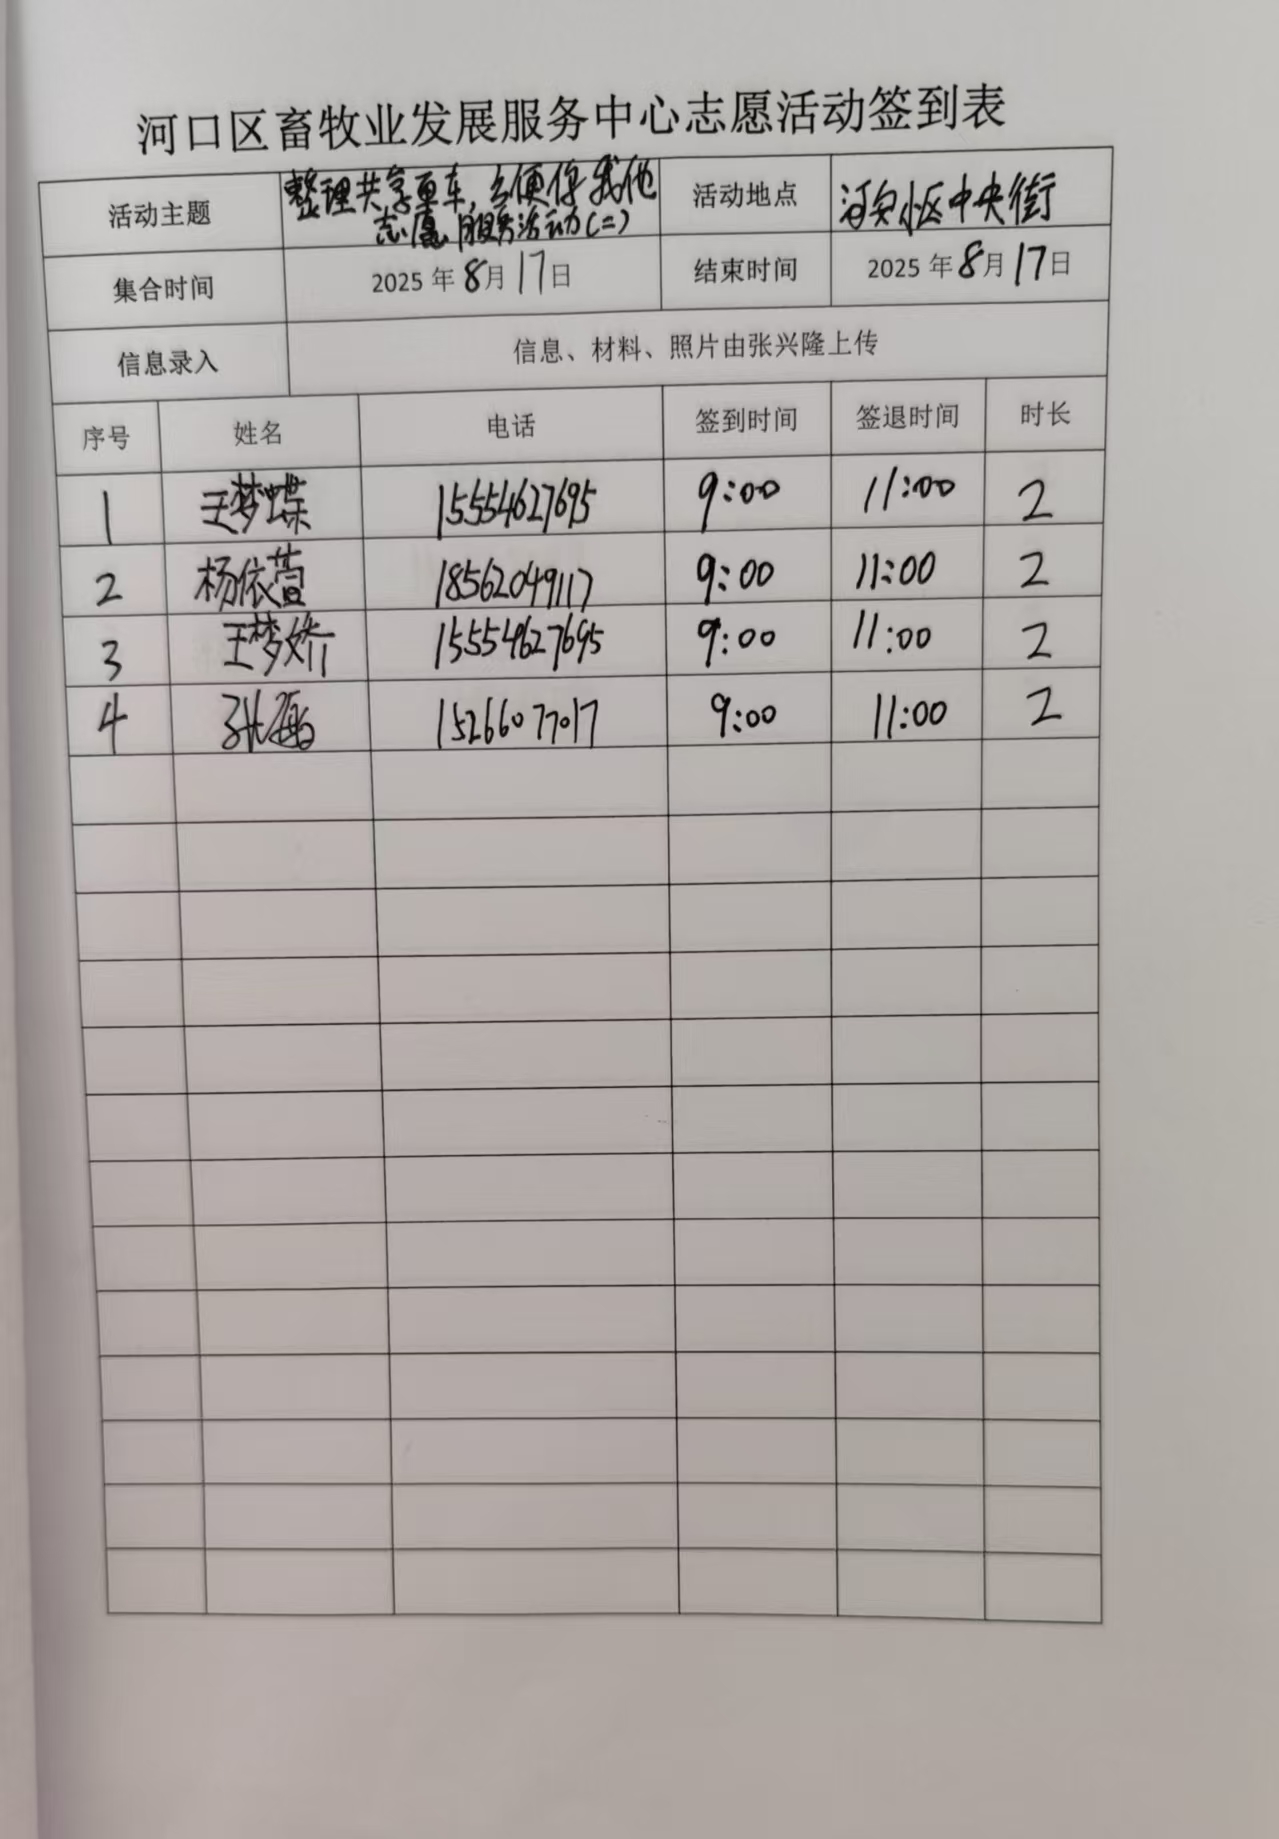 河口区畜牧业发展服务中心志愿活动签到表
活动主题 整理共享单车,方便你我他 活动地点 河安小区中央街
志愿服务活动(二)
集合时间 2025年8月17日 结束时间 2025年8月17日
信息录入 信息、材料、照片由张兴隆上传
序号 姓名 电话 签到时间 签退时间 时长
1 王梦蝶 15554627695 9:00 11:00 2
2 杨依萱 18562049117 9:00 11:00 2
3 王梦娇 15554627695 9:00 11:00 2
4 张 15266077017 9:00 11:00 2